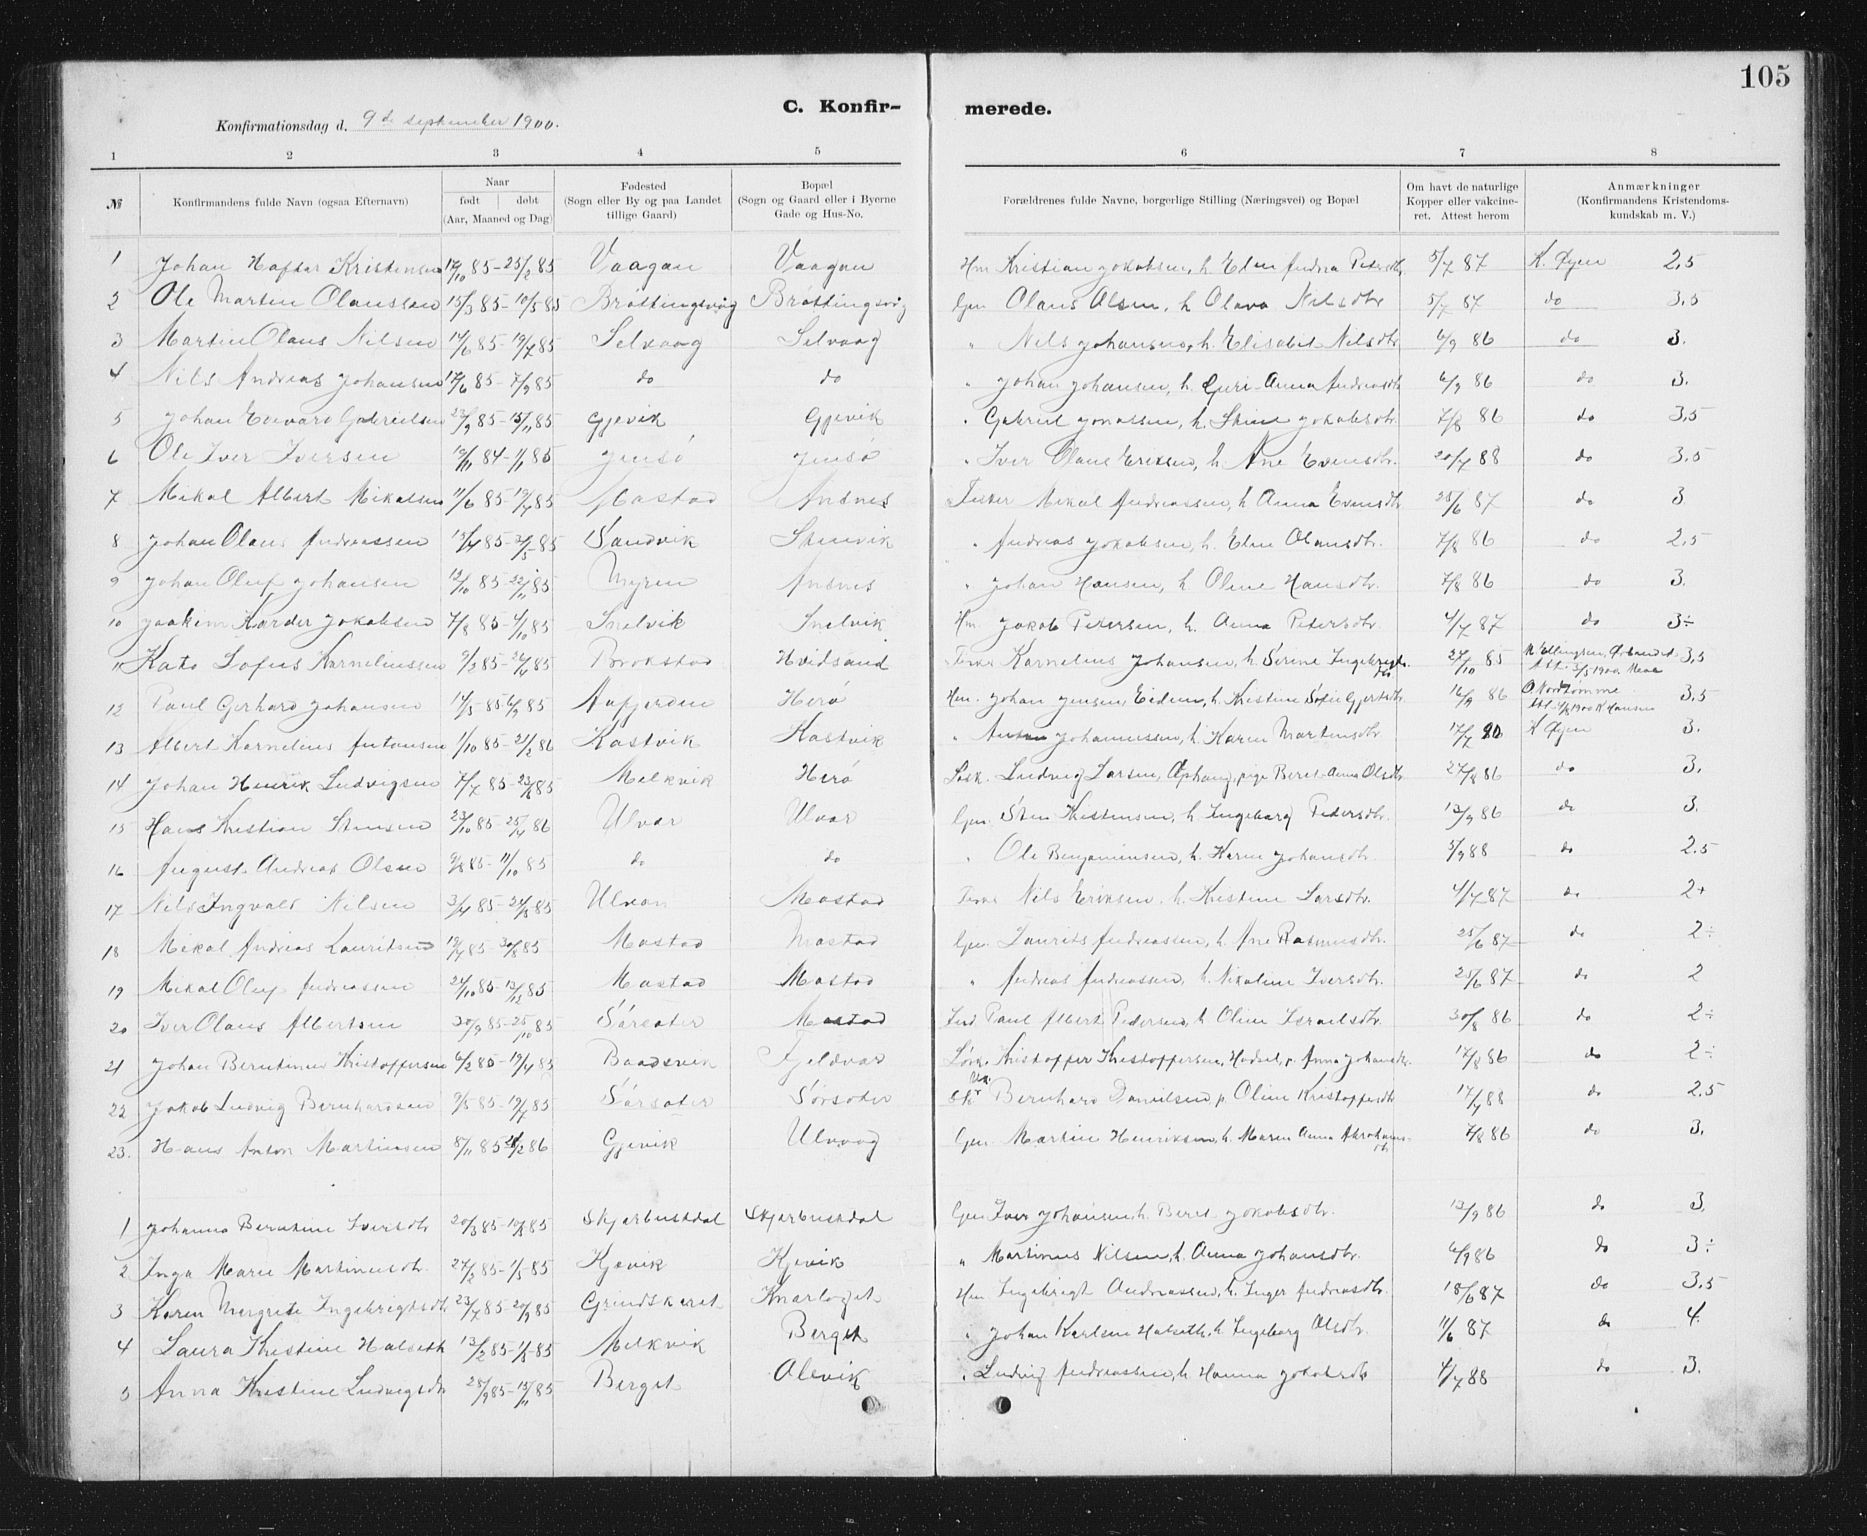 105
C. Konfir-	merede.
Konfirmationsdag d. 9de september 1900.
1	2	3	4	5	6	7	8
№	Konfirmandens fulde Navn (ogsaa Efternavn)	Naar født | døbt (Aar, Maaned og Dag)	Fødested (Sogn eller By og paa Landet tillige Gaard)	Bopæl (Sogn og Gaard eller i Byerne Gade og Hus-No.	Forældrenes fulde Navne, borgerlige Stilling (Næringsvei) og Bopæl	Om havt de naturlige Kopper eller vakcineret. Attest herom	Anmærkninger (Konfirmandens Kristendomskundskab m. V.)
1	Johan Haftar Kristensen	85 - 25/2 85	Vaagan	Vaagan	Hm Kristian Jokobsen, h. Elen Andrea Petersdtr	5/7 87	K. Øyen	2,5
2	Ole Martin Olaussen	15/3 85 - 10/5 85	Bråttingsvåg	Bråttingsvåg	Gm Olaus Olsen, h Olava Nilsdtr	5/7 87	do	3,5
3	Martin Olaus Nilsen	14/6 85 - 19/7 85	Selvaag	Selvaag	" Nils Johansen, h. Elisabet Nilsdtr	6/9 86	do	3.
4	Nils Andreas Johansen	17/6 85 - 7/9 85	do	do	" Johan Johansen, h. Guri Anna Andreasdtr	6/9 86	do	3.
5	Johan Edevard Gabrielsen	22/9 85 - 15/11 85	Gjevik	Gjevik	" Gabriel Jonassen, h. Stine Jokobsdtr	7/8 86	do	3,5
6	Ole Iver Iversen	84 - 1/1 85	Jensø	Jensø	" Iver Olaus Eriksen, h. Ane Evensdtr.	20/7 88	do	3,5
7	Mikal Albert Mikalsen	11/6 85 - 85	Mastad	Andnes	" Fisker Mikal Andreassen, h Anna Evensdtr	25/6 87	do	3
8	Johan Olaus Andreassen	13/4 85 - 85	Sandvik	Stenvik	" Andreas Jokobsen, h. Elen Olausdtr.	7/8 86	do	2,5
9	Johan Oluf Johansen	12/10 85 - 22/11 85	Myren	Andnes	" Johan Hansen, h. Oline Hansdtr.	7/8 86	do	3.
10	Joakim Jokobsen	7/8 85 - 4/10 85	Snelvik	Snelvik	Hm. Jakob Petersen, h. Anna Petersdtr.	4/7 87	do	3÷
11	Kato Sofus Kornelinssen	9/2 85 - 24/4 85	Brokstad	Hvidsand	Kornelius Johansen, h. Serine Ingebrigtsdtr	27/10 85	Ellingsen, 1900	3,5
12	Paul Gerhard Johansen	14/5 85 - 6/9 85	Aafjorden	Herø	Hm. Johan Jensen Eidem, h. Kristine Sofie Gjertsdtr	16/9 86	O. Nordtømme Att. 1900 K Hansen	3,5
13	Albert Kornelius Antonsen	1/10 85 - 21/2 86	Kastvik	Hastvik	" Anton Johannessen, h. Karen Martinsdtr	17/7 90	K Øyen	3.
14	Johan Henrik Ludvigsen	7/7 85 - 23/8 85	Melkvik	Herø	Ludvig Larsen, Ophaug, pige Beret Anna Olsdtr	27/8 86	do	3.
15	Hans Kristian Stensen	23/10 85 - 25/4 86	Ulvar	Ulvar	Gm. Sten Kristensen, h Ingeborg Pedersdtr.	13/9 86	do	3.
16	August Andreas Olsen	9/8 85 - 11/10 85	do	do	" Ole Benjaminsen, h. Karen Johansdtr	5/9 88	do	2,5
17	Nils Ingvald Nilsen	3/4 85 - 24/5 85	Ulvan	Mastad	Nils Eriksen, h. Kristine Larsdtr.	4/7 87	do	2+
18	Mikal Andreas Lauritsen	85 - 30/8 85	Mastad	Mastad	Gm. Laurits Andreassen, h. Ane Rasmusdtr.	25/6 87	do	2÷
19	Mikal Oluf Andreassen	24/10 85 - 85	Mastad	Mastad	" Andreas Andreassen, h. Nikoline Iversdtr.	25/6 87	do	2
20	Iver Olaus Albertsen	20/9 85 - 25/10 85	Sørsøter	Mastad	Paul Albert Pedersen, h Oline Israelsdtr.	30/8 86	do	2÷
21	Johan Berntinus Kristoffersen	6/2 85 - 19/4 85	Baadsvik	Gjeldvar	Kristoffer Kristoffersen, p. Anna Johansdtr	17/8 86	do	2÷
22	Jakob Ludvig Bernhardsen	9/5 85 - 19/7 85	Sørsøter	Sørsøter	Bernhard Danielsen p. Oline Kristoffersdtr	17/7 88	do	2,5
23.	Hans Anton Martinsen	8/11 85 86	Gjevik	Ulvaag	Gm. Martin Henriksen, h. Maren Anna Abrahamsdtr	7/8 86	do	3.
1	Johanna Berntine Iversdtr	20/3 85 - 10/5 85	Skjærbusdal	Skjærbusdal	Gm Iver Johansen h. Beret Jokobsdtr.	13/9 86	do	3.
2	Inga Marie Martinusdtr.	27/2 85 - 1/5 85	Kjevik	Kjevik	" Martinus Nilsen, h. Anna Johansdtr.	6/9 86	do	3÷
3	Karen Margrete Ingebrigtsdtr	23/7 85 - 20/9 85	Grindskaret	Knarlaget	Hm Ingebrigt Andreassen, h. Inger Andreasdtr.	18/6 87	do	3,5
4	Laura Kristine Halseth	13/2 85 - 85	Melkvik	Berget	" Johan Karlsen Halseth, h. Ingeborg Olsdtr.	11/6 87	do	4.
5	Anna Kristine Ludvigsdtr	28/9 85 - 15/11 85	Berget	Olavik	" Ludvig Andreassen, h Hanna Jokobsdtr	4/7 88	do	3.